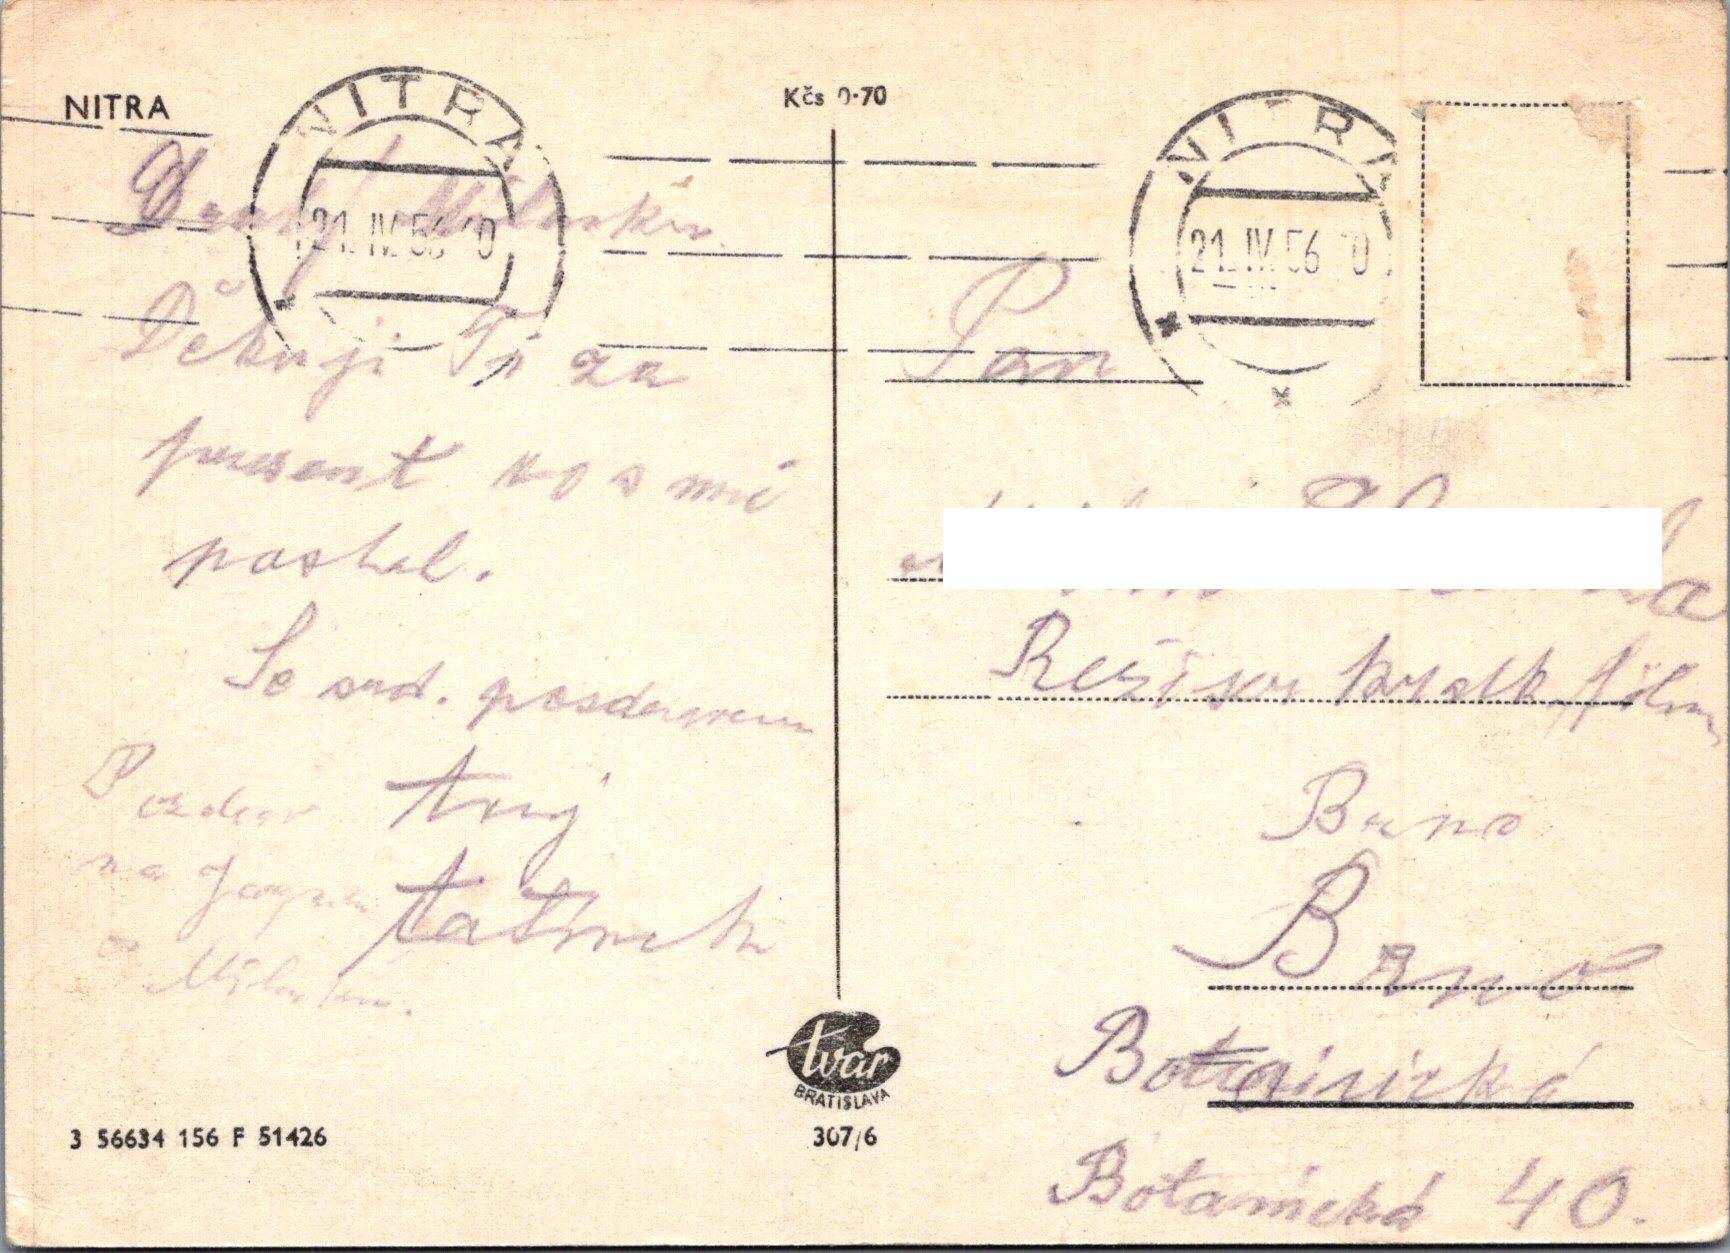 NITRA
Kčs 0·70
NITRA
21. IV. 56
NITRA
21. IV. 56
Drahý
Děkuji Ti za
present mi
poslal.
Se srd. posdravem
tvůj
tatínek
Pozdrav
na
a
Pan
Režisor krátk. film
Brno
Brno
Botanická
Botanická 40.
tvar
BRATISLAVA
307/6
3 56634 156 F 51426